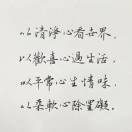 以清淨心看世界,
以歡喜心過生活,
以平常心生情味,
以柔軟心除罣礙。